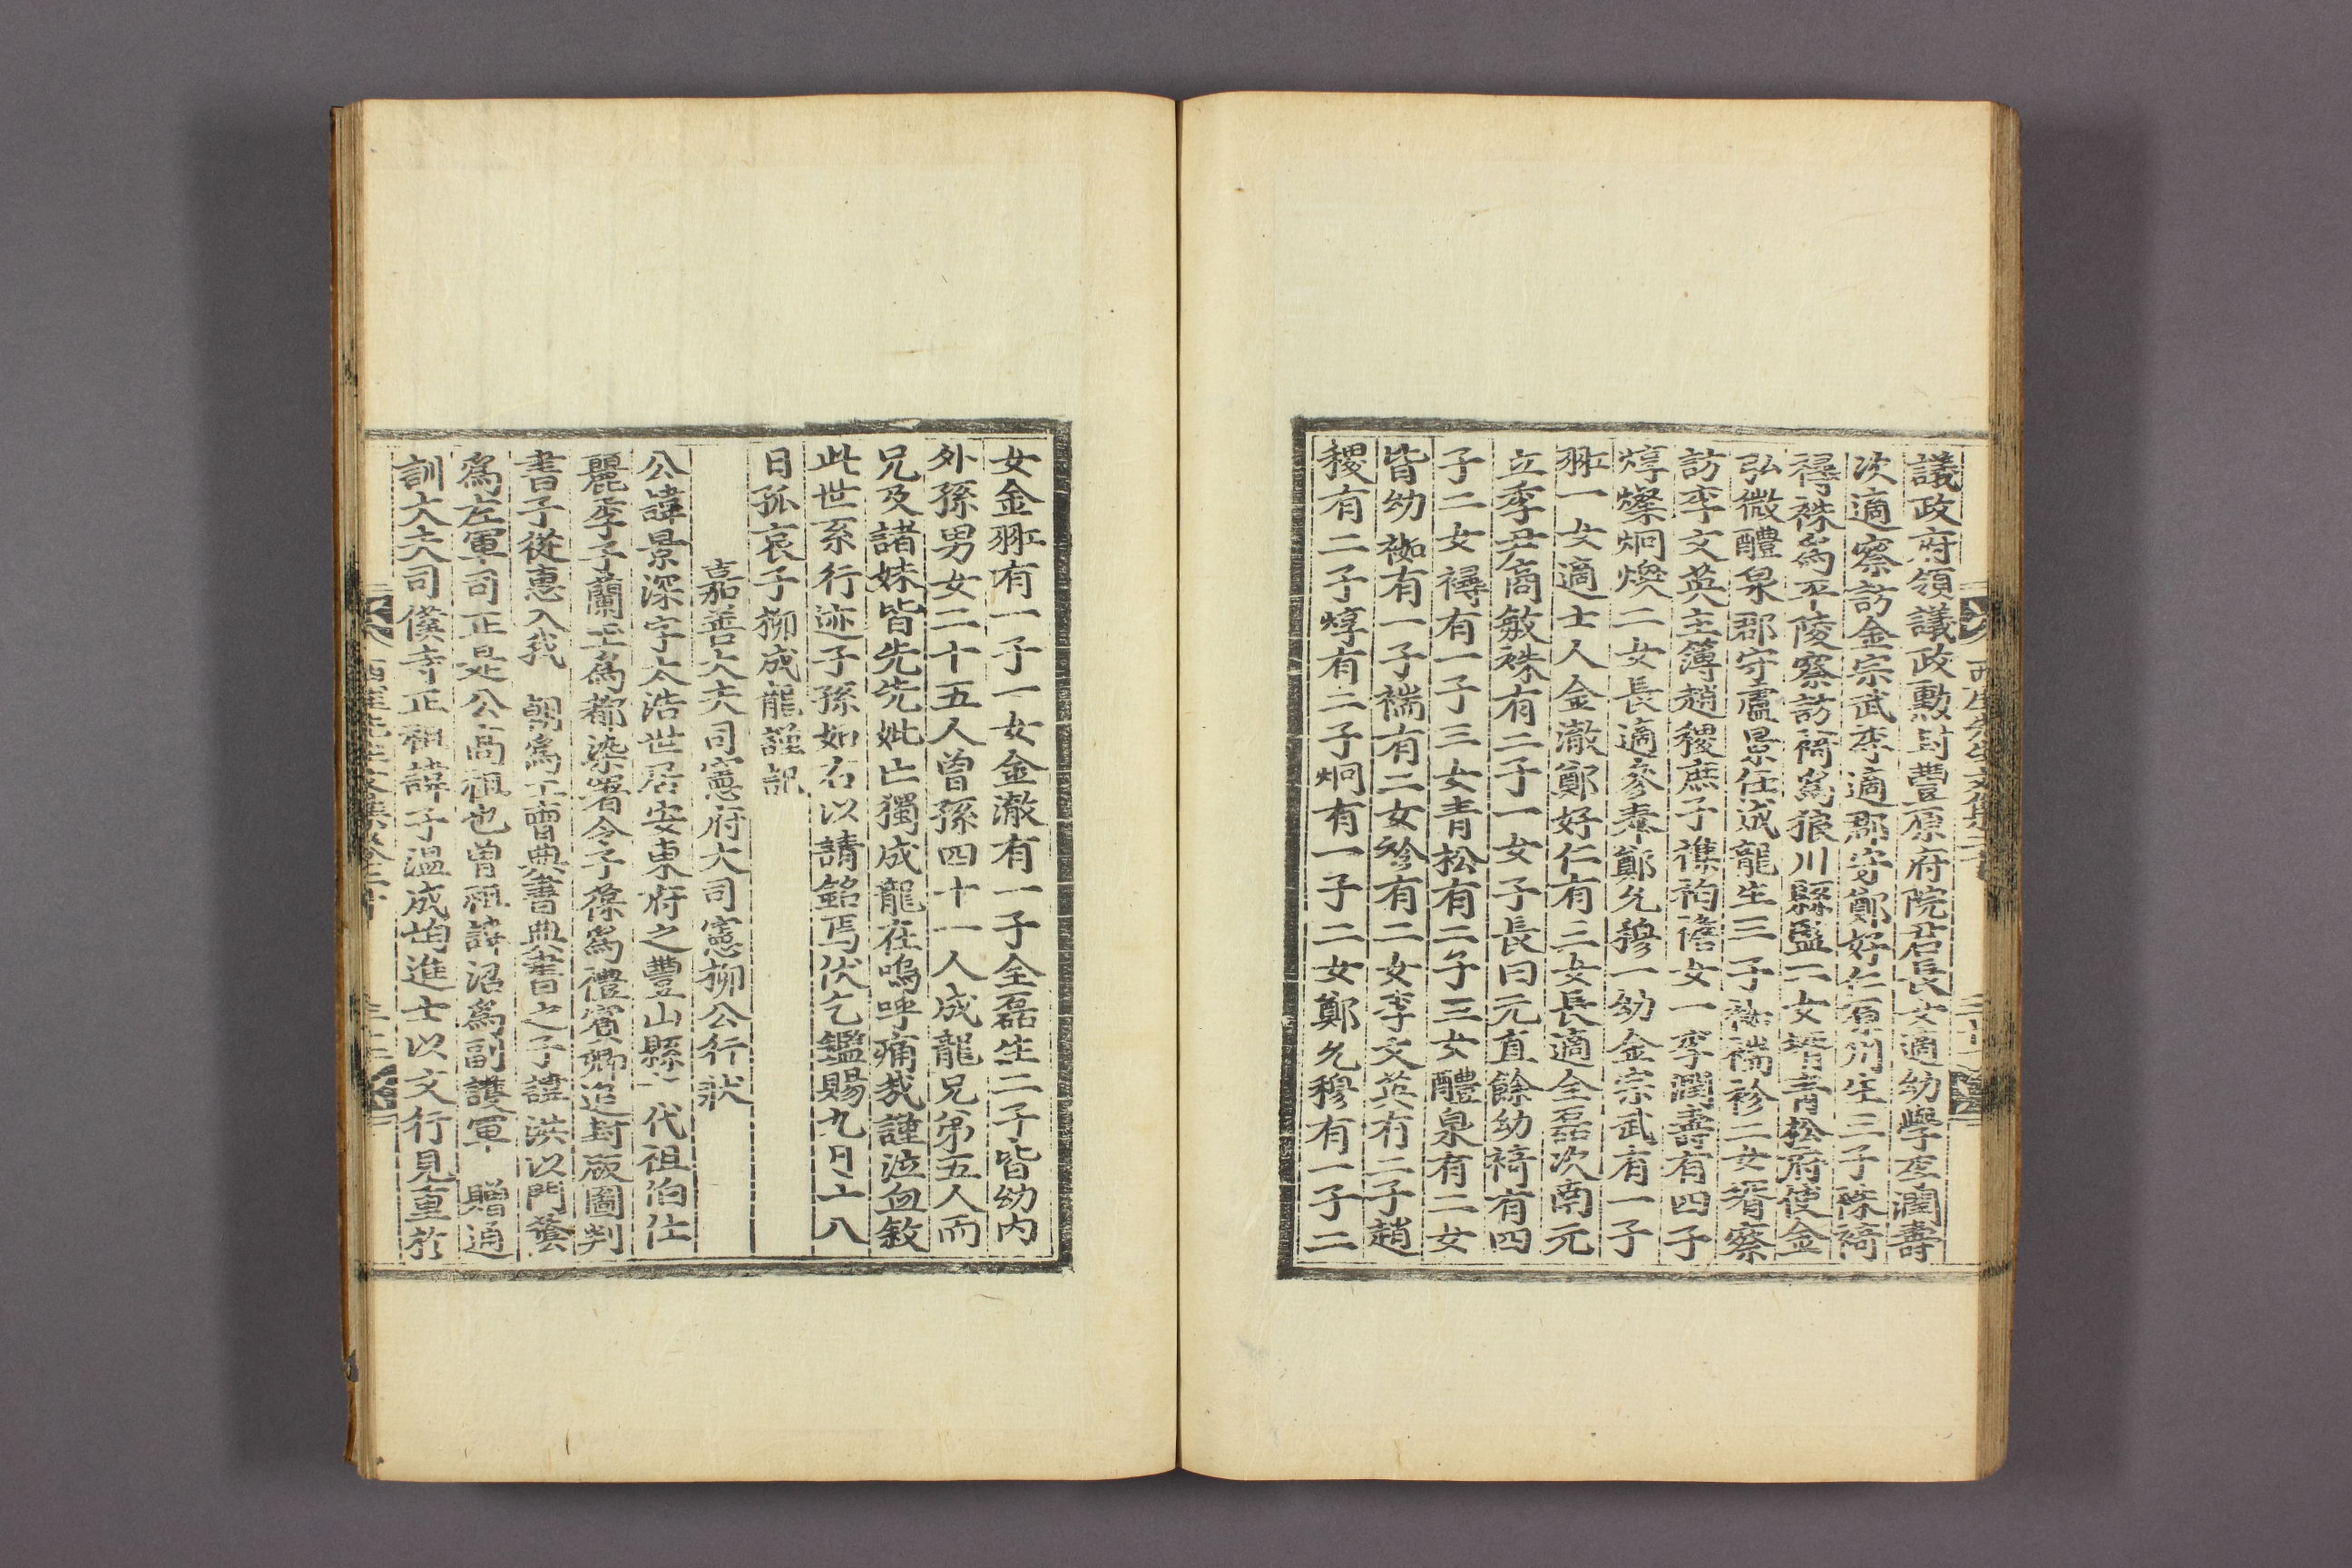 議政府領議政勲封豊原府院君長女適幼學李潤壽
次適察訪金宗武季適郡守鄭好仁原州生三子裖裿
䙷袾爲平陵察訪裿爲狼川縣監二女壻靑松府使金
弘微醴泉郡守盧景任成龍生三子袽褍袗二女壻察
訪李文英主簿趙稷庶子𧝬袧襜女一李潤壽有四子
焞燦烔煥二女長適參奉鄭允穆一幼金宗武有一子
翀一女適士人金澈鄭好仁有三女長適全磊次南元
立季尹商敏袾有二子一女子長曰元直餘幼裿有四
子二女䙷有一子三女青松有二子三女醴泉有二女
皆幼袽有一子褍有二女袗有二女李文英有二子趙
稷有二子焞有二子烔有一子二女鄭允穆有一子二
女金翀有一子一女金澈有一子全磊生二子皆幼內
外孫男女二十五人曾孫四十一人成龍兄弟五人而
兄及諸妹皆先先妣亡獨成龍在嗚呼痛哉謹泣血敍
此世系行迹子孫如右以請銘焉伏乞鑑賜九月十八
日孤哀子柳成龍謹記
嘉善大夫司憲府大司憲柳公行狀
公諱景深字太浩世居安東府之豊山縣一代祖伯仕
麗季子蘭玉爲都染署令子葆爲禮賓卿追封版圖判
書子從惠入我　朝爲工曹典書典書之子諱洪以門蔭
爲左軍司正是公高祖也曾祖諱沼爲副護軍　贈通
訓大夫司僕寺正祖諱子溫成均進士以文行見重於
西厓先生文集卷之二十